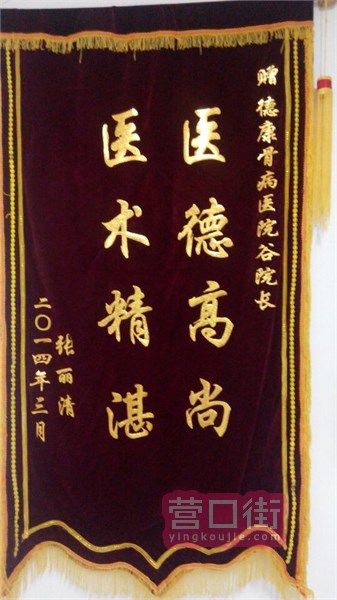 赠德康骨病医院谷院长
医德高尚
医术精湛
张丽清
二〇一四年三月
营口街
yingkoujie.com